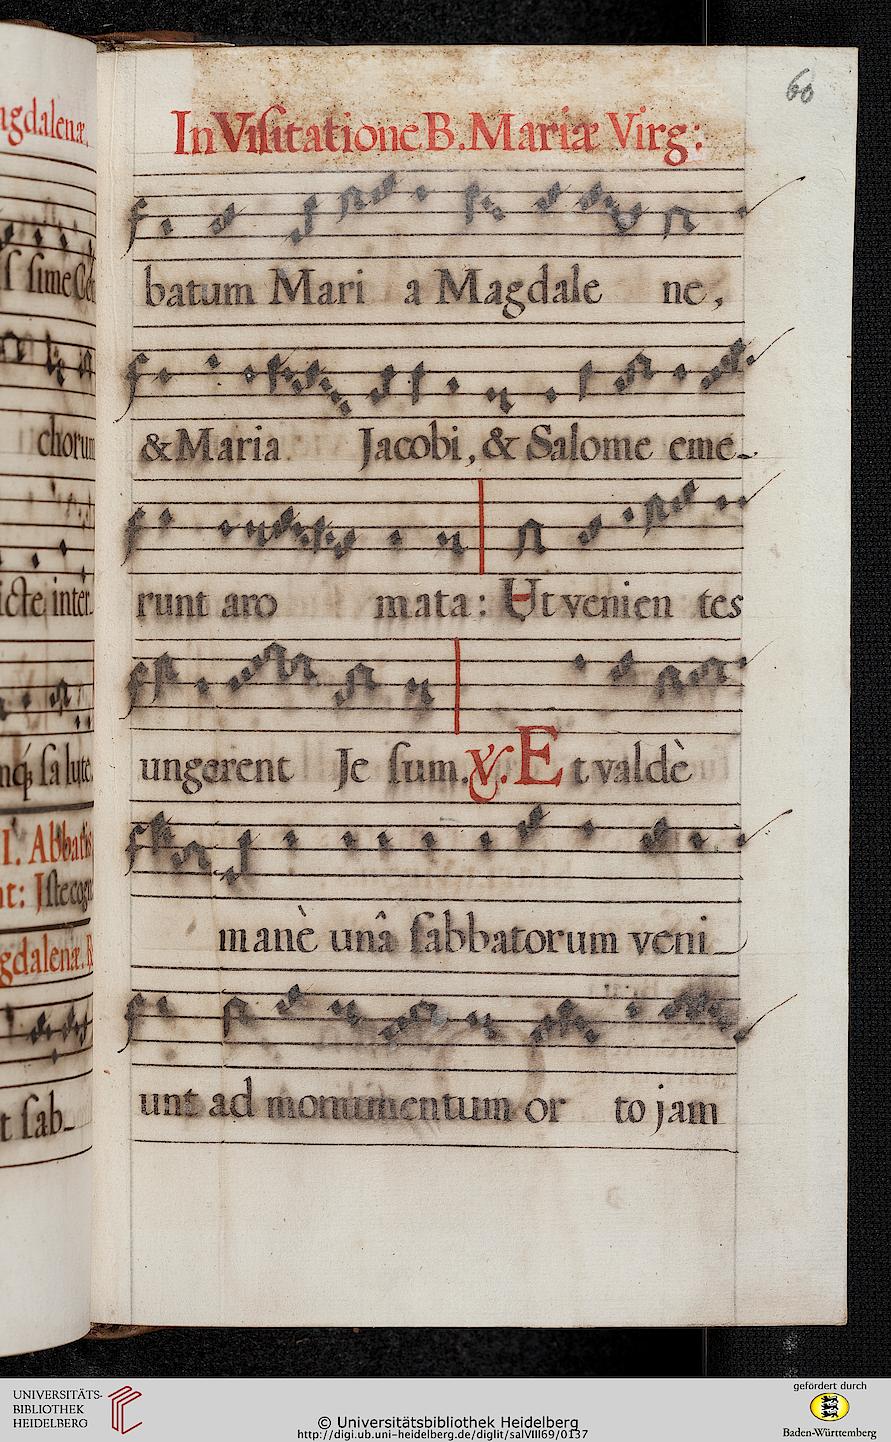 agdalenæ.
ſſime
chorum
icte inter
ſalute
I. Abbatis
nt: Iſte
gdalenæ.
t ſab-
60
In Viſitatione B. Mariæ Virg:
batum Mari a Magdale ne,
& Maria Jacobi, & Salome eme-
runt aro mata: Ut venien tes
ungerent Je ſum. ℣. Et valdè
manè unâ ſabbatorum veni
unt ad monumentum or to jam
UNIVERSITÄTS-
BIBLIOTHEK
HEIDELBERG
© Universitätsbibliothek Heidelberg
http://digi.ub.uni-heidelberg.de/diglit/salVIII69/0137
gefördert durch
Baden-Württemberg